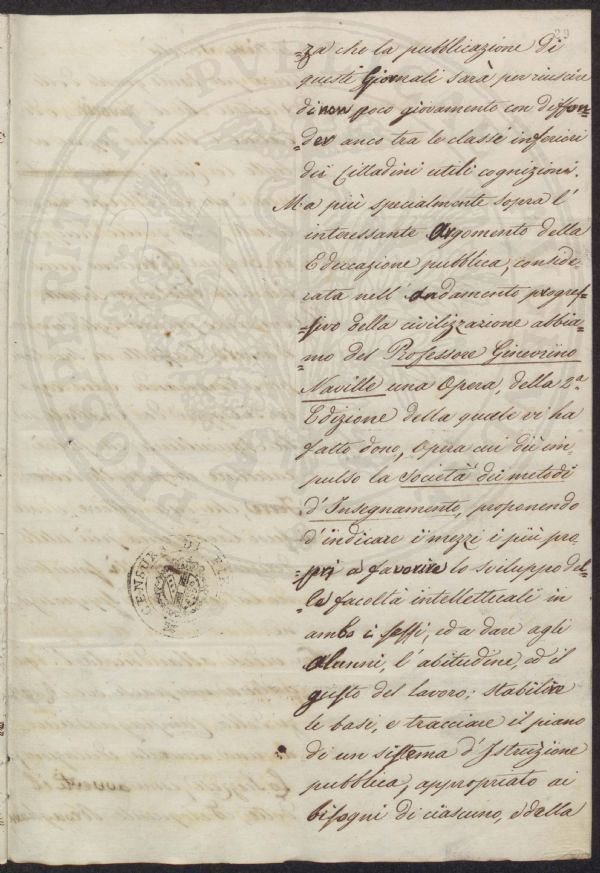 20
=za che la pubblicazione di
questi Giornali sarà per riuscire
di non poco giovamento con diffon=
=der anco tra le classi inferiori
dei Cittadini utili cognizioni.
Ma più specialmente sopra l'
interessante Argomento della
Educazione pubblica, conside-
rata nell' andamento progres-
=sivo della civilizzazione abbia=
=mo del Professore Ginevrino
Naville una Opera, della 2.a
Edizione della quale vi ha
fatto dono, Opera cui diè im-
pulso la Società dei metodi
d'Insegnamento, proponendo
d'indicare i mezzi i più pro
=pri a favorire lo sviluppo del=
=le facoltà intellettuali in
ambo i sessi, ed a dare agli
Alunni, l'abitudine, ed il
gusto del lavoro; stabilire
le basi, e tracciare il piano
di un sistema d'Istruzione
pubblica, appropriato ai
bisogni di ciascuno, e dalla
CENSURA DI